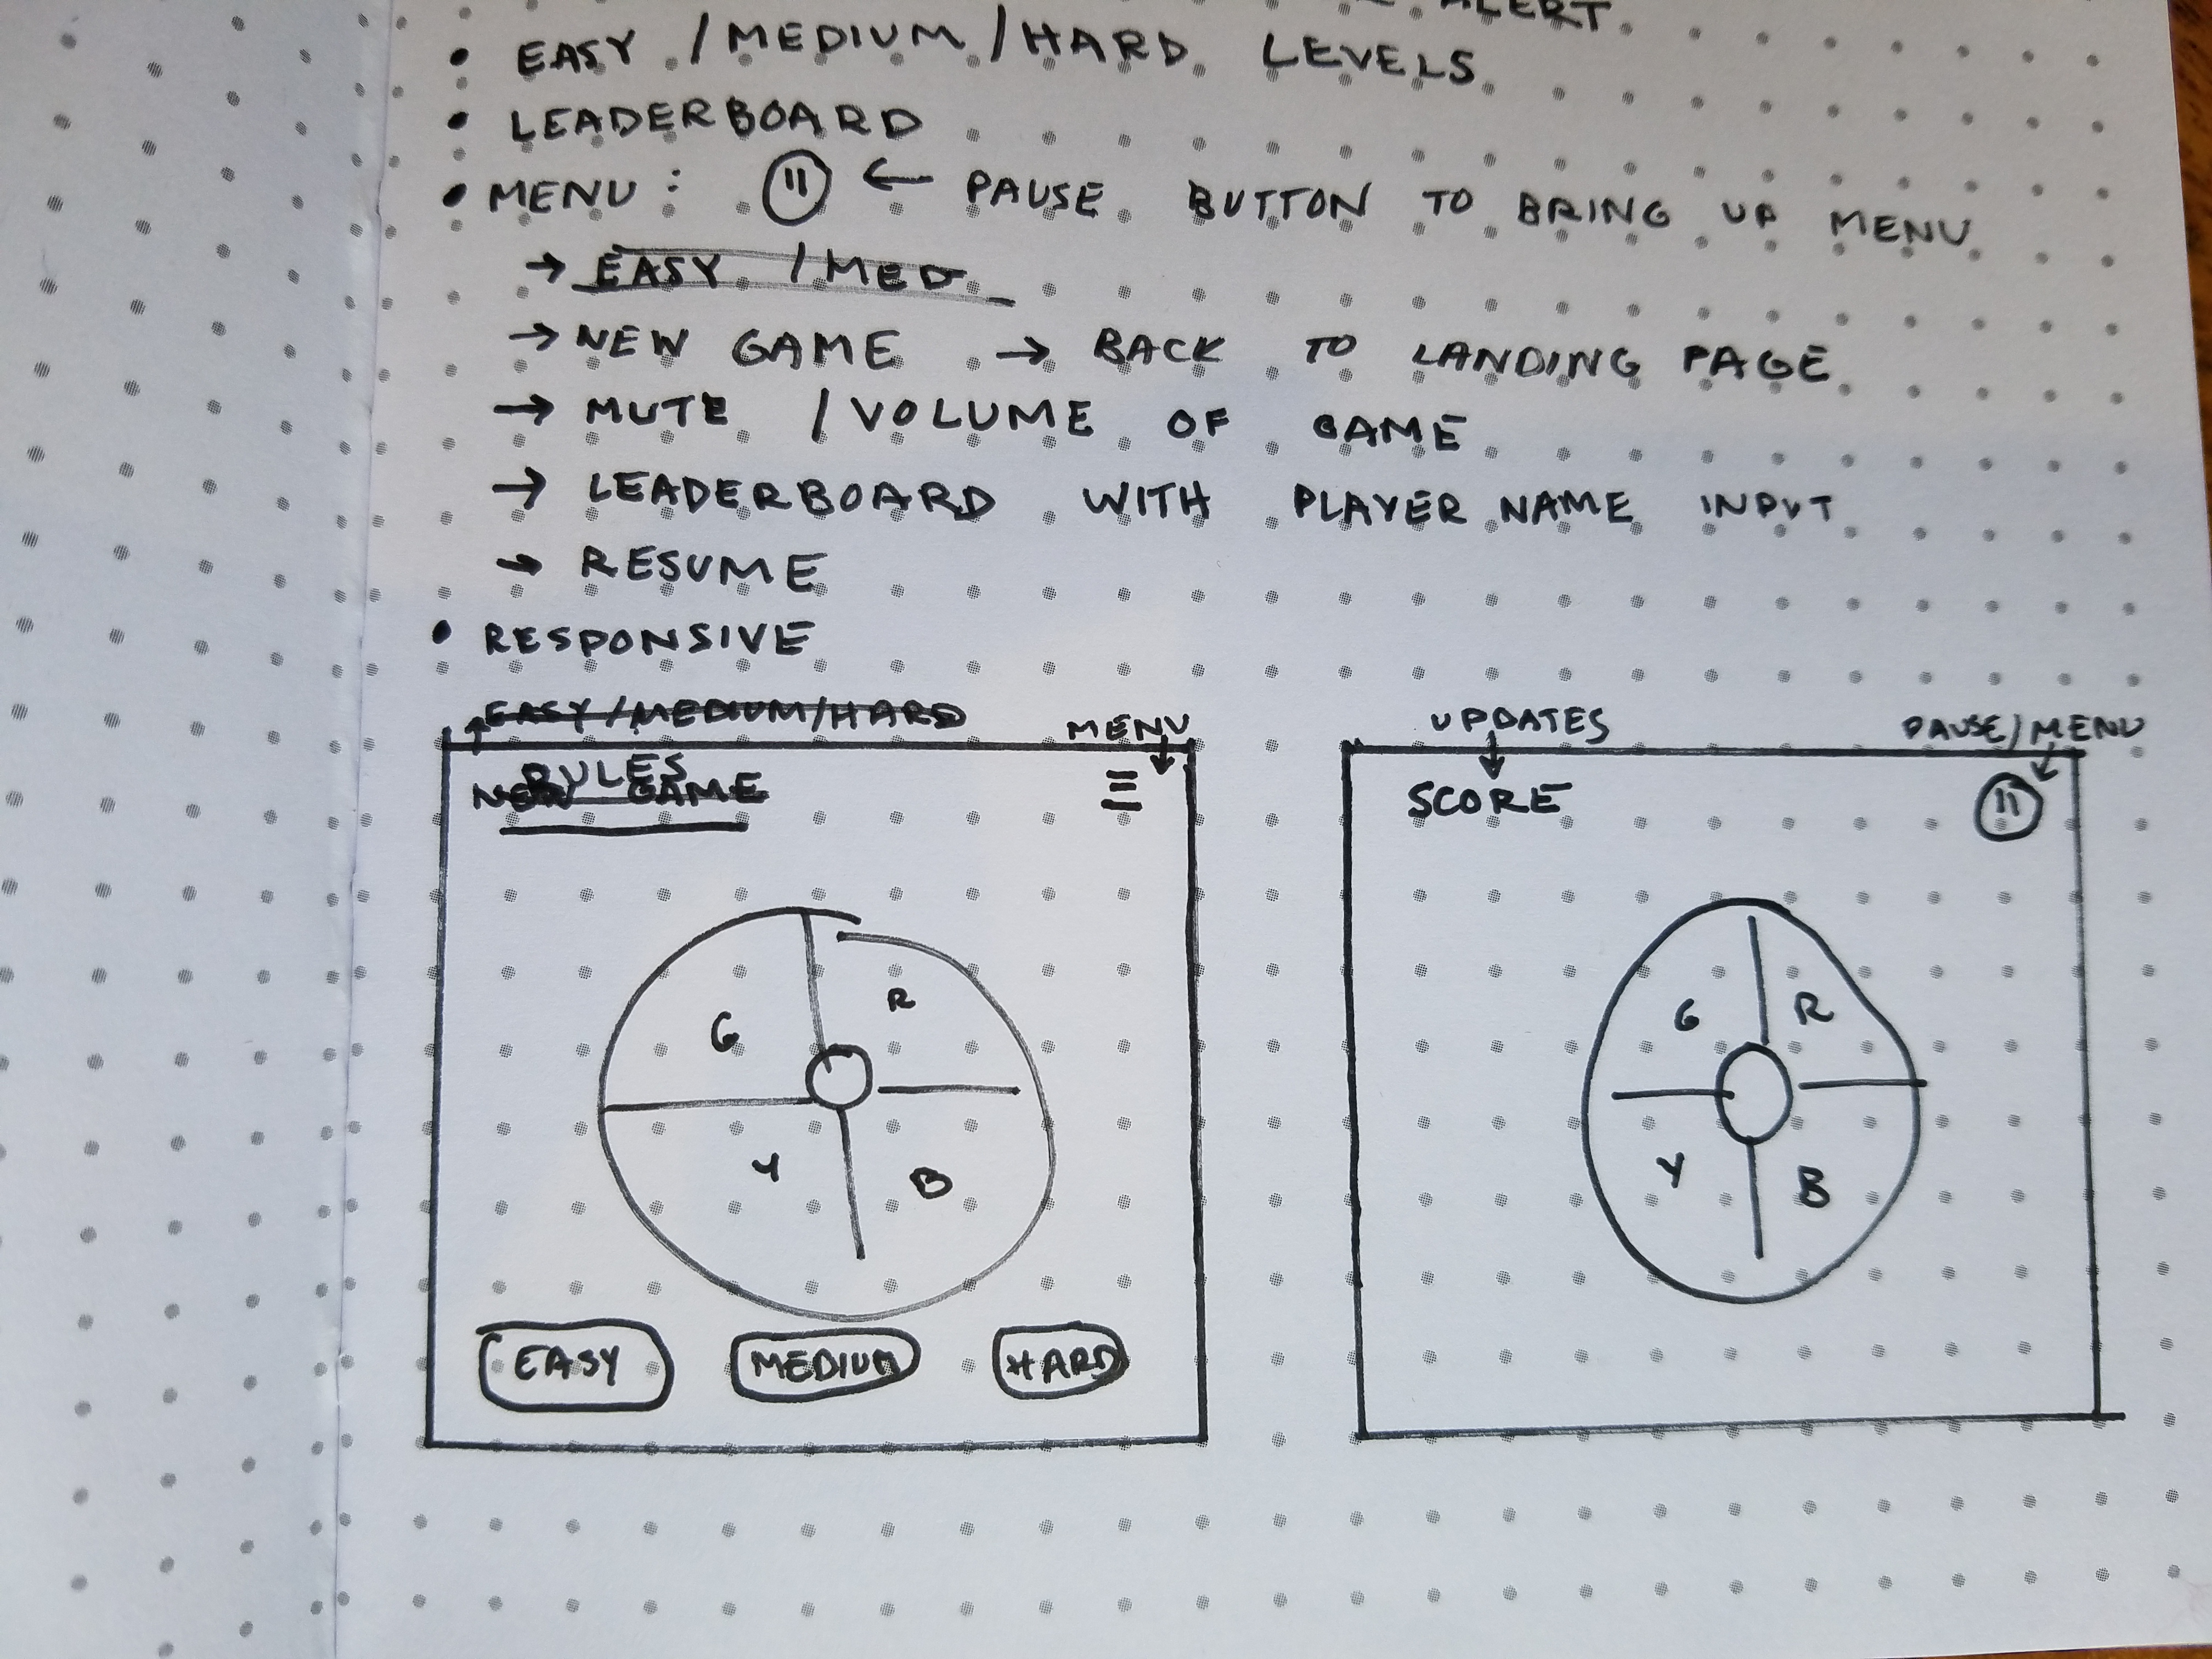 ALERT.
• EASY / MEDIUM / HARD LEVELS
• LEADERBOARD
• MENU: ⏸ ← PAUSE BUTTON TO BRING UP MENU
→ EASY / MED
→ NEW GAME → BACK TO LANDING PAGE
→ MUTE / VOLUME OF GAME
→ LEADERBOARD WITH PLAYER NAME INPUT
→ RESUME
• RESPONSIVE
EASY/MEDIUM/HARD
MENU
RULES
NEW GAME
G R
Y B
EASY MEDIUM HARD
UPDATES
PAUSE/MENU
SCORE
G R
Y B